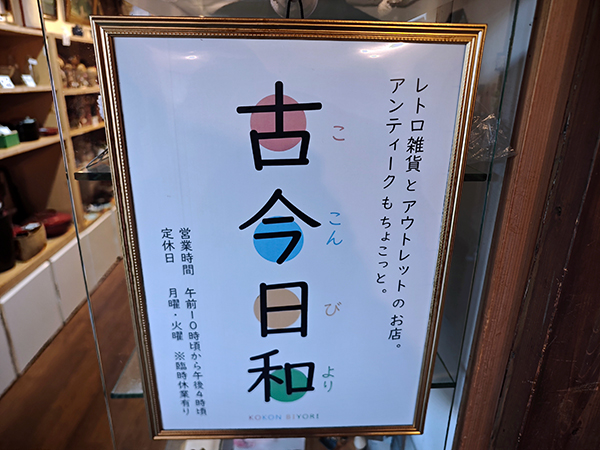 レトロ雑貨とアウトレットのお店。
アンティークもちょこっと。
古今日和
ここんびより
営業時間 午前10時頃から午後4時頃
定休日 月曜・火曜 ※臨時休業有り
KOKON BIYORI